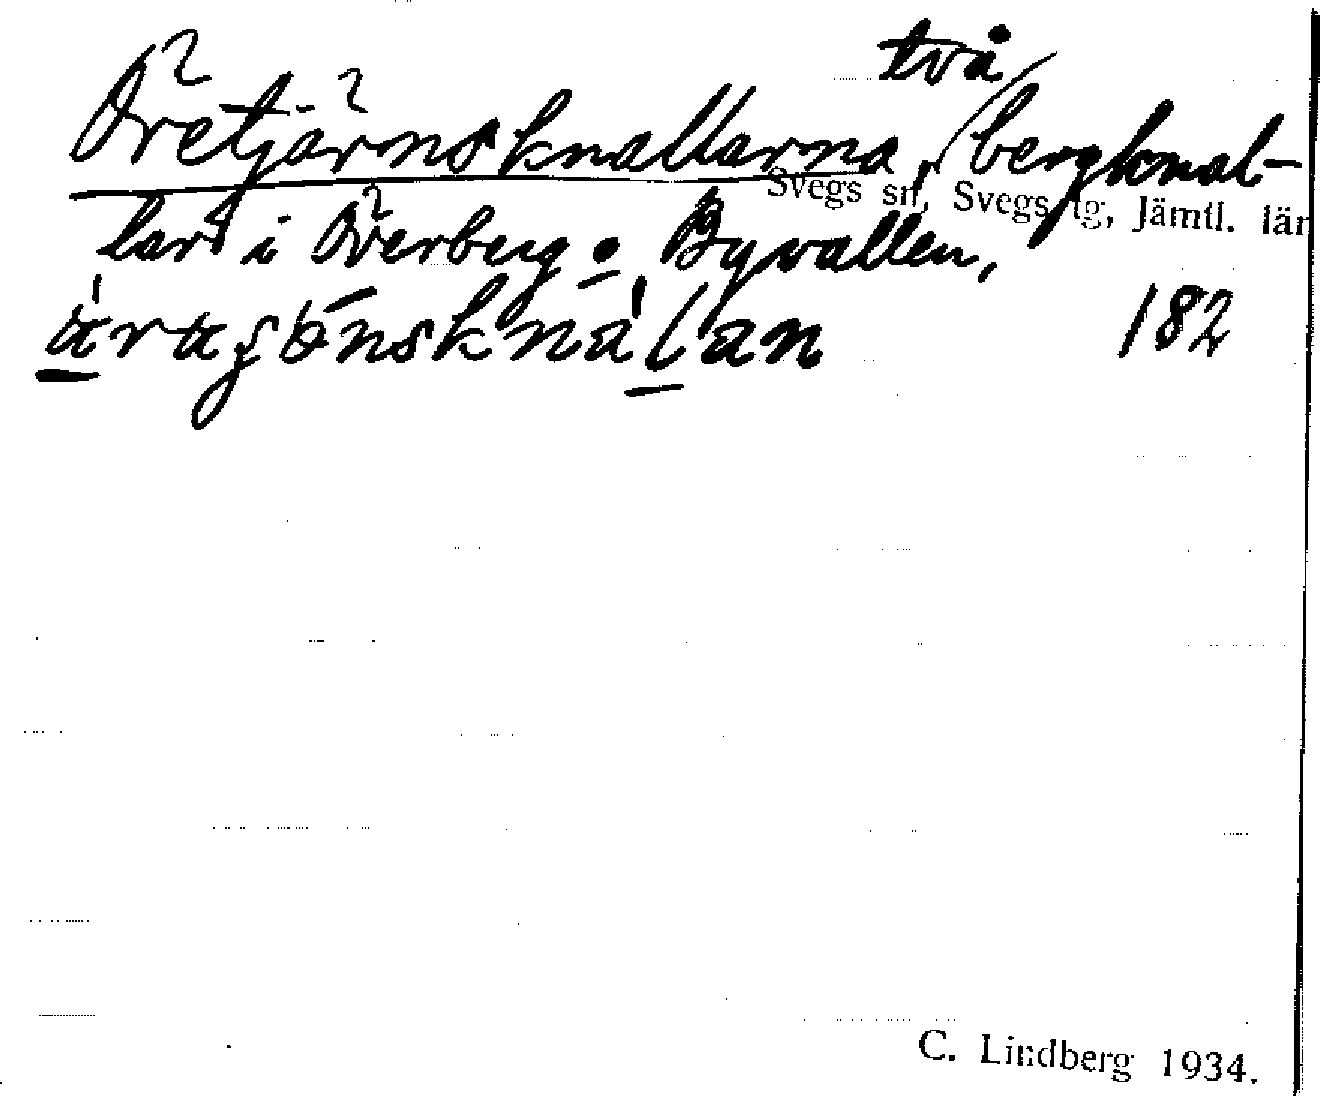 två
Öretjärnsknallarna, bergknal-
Svegs sn, Svegs tg, Jämtl. län
lar i Överberg o Byvallen,
182
C. Lindberg 1934.